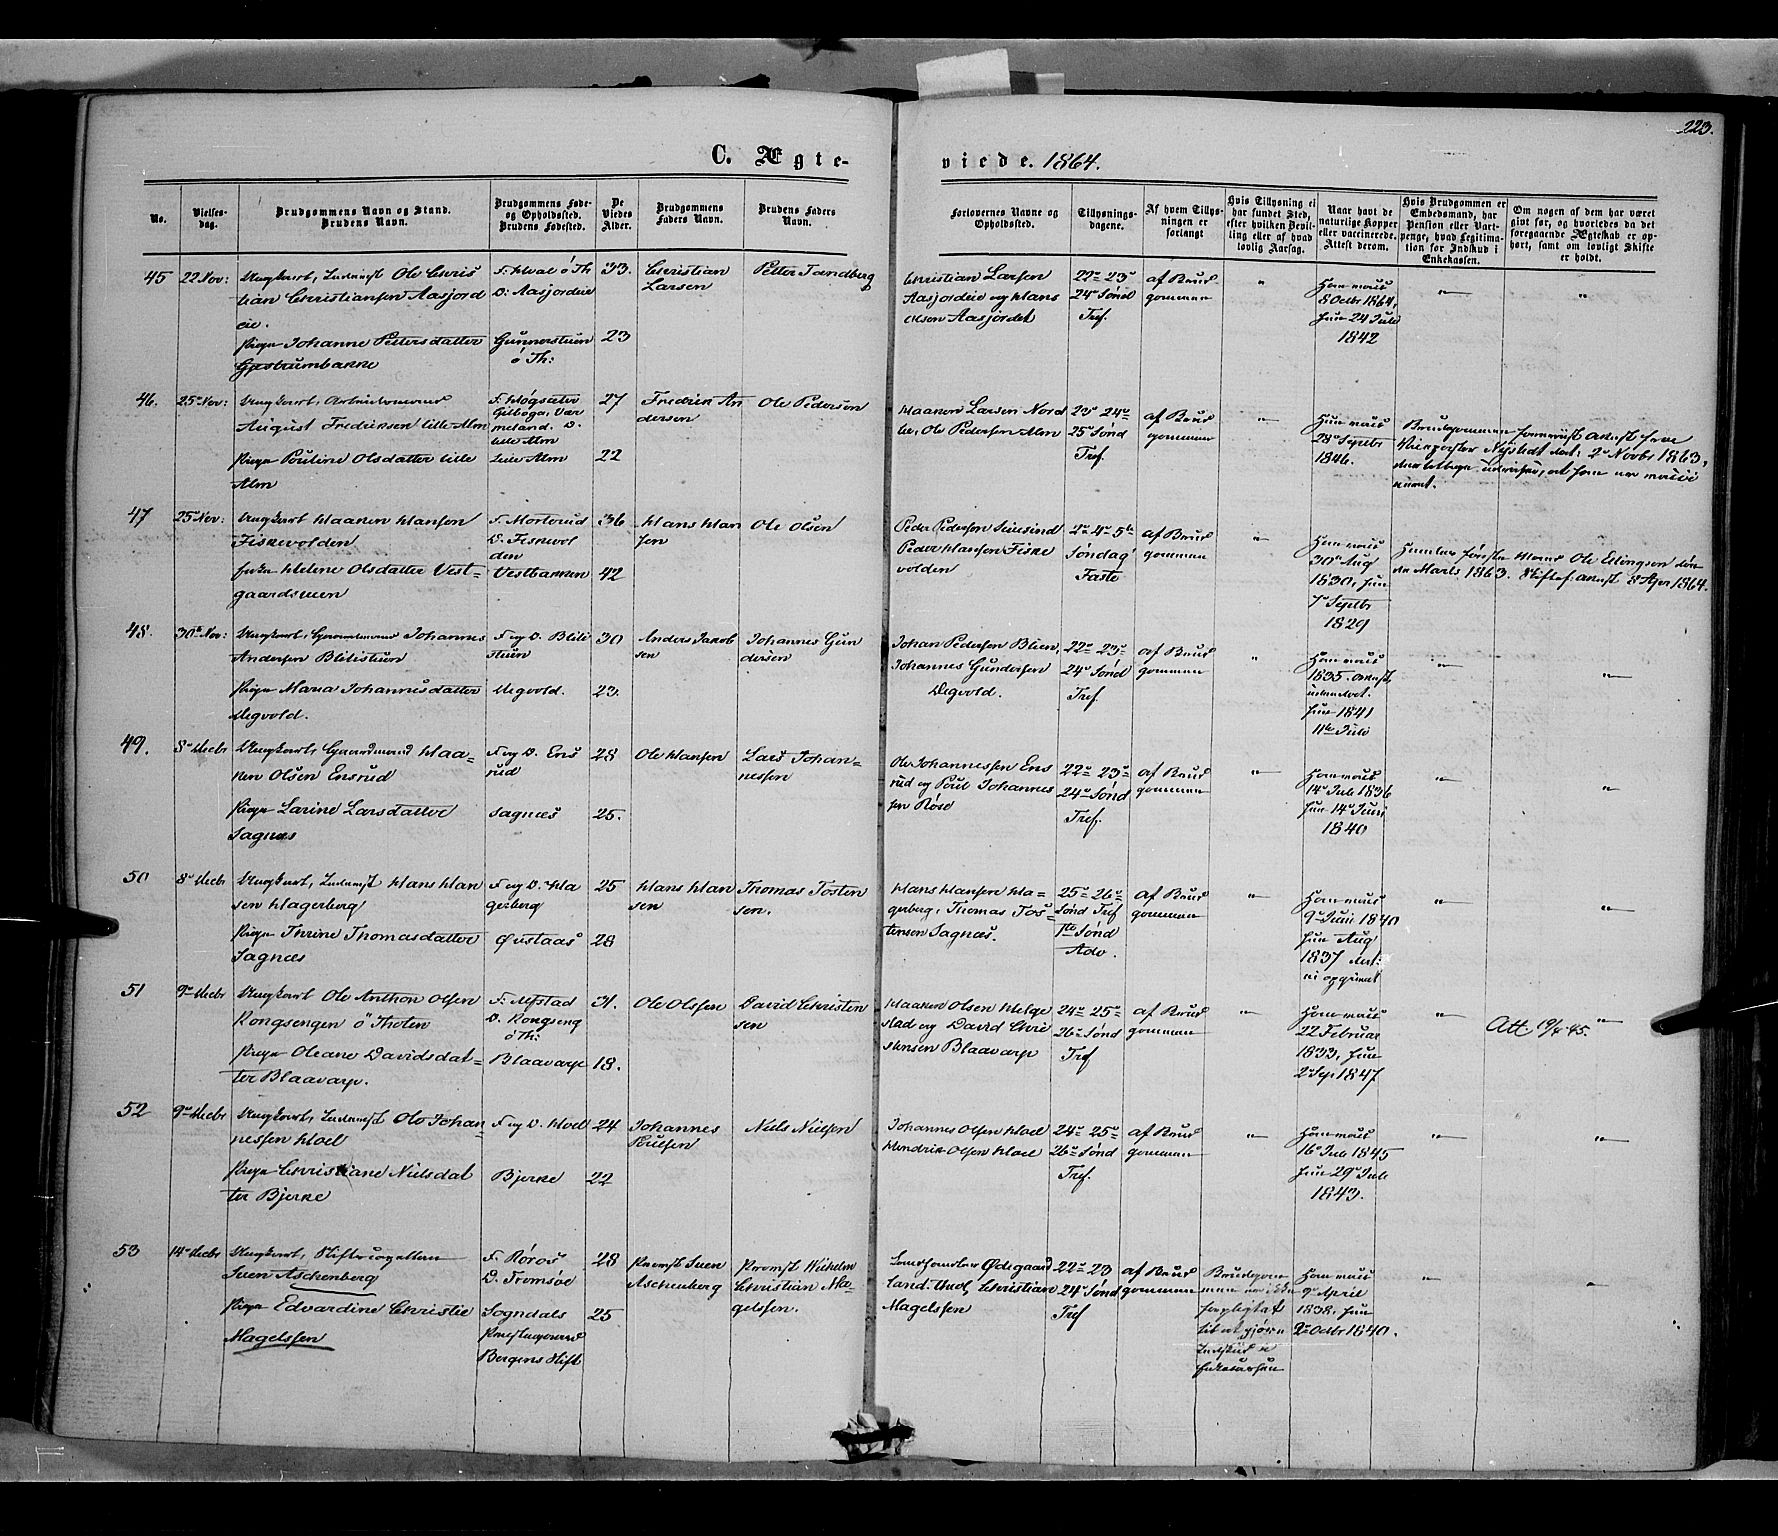 223.
C. Ægte-
viede. 1864.
No.
Vielses-
dag.
Brudgommens Navn og Stand.
Brudens Navn.
Brudgommens Føde-
og Opholdssted.
Brudens Fødested.
De
Viedes
Alder.
Brudgommens
Faders Navn.
Brudens Faders
Navn.
Forlovernes Navne og
Opholdssted.
Tillysnings-
dagene.
Af hvem Tillys-
ningen er
forlangt
Hvis Tillysning ei
har fundet Sted,
efter hvilken Bevil-
ling eller af hvad
lovlig Aarsag.
Naar havt de
naturlige Kopper
eller vaccinerede.
Attest derom.
Hvis Brudgommen er
Embedsmand, har
Pension eller Vart-
penge, hvad Legitima-
tion for Indskud i
Enkekassen.
Om nogen af dem har været
givt før, og hvorledes da det
foregaaende Ægteskab er op-
hørt, samt om lovligt Skifte
er holdt.
45 22 Nov: Ungkarl, Inderst Ole Chris
tian Christiansen Aasjord
eie.
Pige Johanne Pettersdatter
F. Hval ö Th
D. Aasjordeie
Gunnerstuen
ö Th:
33.
23
Christian
Larsen
Petter Tandberg
Christian Larsen
Aasjordeie og Hans
Olsen Aasjordet
22de 23de
24de Sønd
Tref.
af Brud
gommen
"
Ham nat
8 Octbr 1864,
hun 24 Juli
1842
"
"
46. 25de Nov: Ungkarl,
August Fredriksen lille Alm
Pige Pouline Olsdatter lille
Alm
F. Høgsæter
Gilboga, Vær
meland. D.
lille Alm
Leie Alm
27
22
Fredrik An
dersen
Ole Pedersen
Haaken Larsen Nord
lie, Ole Pedersen Alm
23de 24de
25de Sønd
Tref.
af Brud
gommen
"
Hun nat
28de Septbr
1846.
Brudgommen
2de Novbr 1863,
47 25de Nov: Ungkarl Haaken Hansen
Fiskevolden
Enke Helene Olsdatter Vest-
gaardseien
F. Morterud
D. Fiskevol
den
Vestbakken
36
42
Hans Han
sen
Ole Olsen
Peder Pedersen
Peder Hansen Fiske
volden
2de 4de 5te
Søndag
Faste
af Brud
gommen
"
Ham nat
30te Aug
1830, hun
7de Septbr
1829
Hendes første Mand Ole Ellingsen døde
Marts 1863. Skifteattest 8 Apr 1864.
48. 30te Nov: Ungkarl, Gaardmand Johannes
Andersen Blilistuen
Pige Maria Johannesdatter
Degvold.
F. og D. Blili
stuen
Degvold.
30
23.
Anders Jacob
sen
Johannes Gun
dersen
Johan Pedersen Blien,
Johannes Gundersen
Degvold.
22de 23de
24de Sønd
Tref.
af Brud
gommen
"
Ham nat
1835. Attest
uden Dat.
hun 1841
11te Juli
"
"
49. 8de Decbr Ungkarl, Gaardmand Haa-
ken Olsen Ensrud
Pige Larine Larsdatter
Sagnæs
F. og D. Ens
rud
Sagnæs
28
25.
Ole Hansen
Lars Johan-
nessen
Ole Johannessen Ens
rud og Poul Johannes
sen Røse
22de 23de
24de Sønd
Tref.
af Brud
gommen
"
Ham nat
14de Juli 1836
hun 14de Juni
1840
"
"
50 8de Decbr Ungkarl, Inderst Hans Han
sen Hagerberg
Pige Thrine Thomasdatter
Sagnæs
F. og D. Ha
gerberg
Øvstaas
25
28
Hans Han
sen
Thomas Tosten
sen.
Hans Hansen Ha-
gerberg, Thomas Tos-
tensen Sagnæs.
25de 26de
Sønd Tref
1ste Sønd
Adv.
af Brud
gommen
"
Ham nat
9de Juni 1840
hun Aug
1837 Dat:
ei opgivet
"
"
51 9de Decbr Ungkarl Ole Anthon Olsen
Kongsengen ö Thoten
Pige Oleane Davidsdat-
ter Blaavarp.
D. Kongseng
ö Th:
Blaavarp
31.
18.
Ole Olssen
David Christen
sen
Haaken Olsen Helge
stad og David Chri
stensen Blaavarp
24de 25de
26de Sønd
Tref
af Brud
gommen
"
Ham nat
22 Februar
1833, hun
2de Sep 1847
"
Att 19/4 45.
"
52 9de Decbr Ungkarl, Inderst Ole Johan-
nessen Hoel
Pige Christiane Nielsdat
ter Bjerke
F. og D. Hoel
Bjerke
24
22
Johannes
Niels Nielsen
Johannes Olsen Hoel
Hendrik Olsen Hoel
24de 25de
26de Sønd
Tref.
af Brud
gommen
"
Ham nat
16de Juli 1845
hun 29de Juli
1843.
"
"
53 14de Decbr Ungkarl, Stiftscapellan
Iver Aschenberg
Pige Edvardine Christie
Magelssen
F. Røros
D. Tromsøe
Sogndals
Præstegjeld
Bergens Stift
28
25
Provst Iver
Aschenberg
Provst Wilhelm
Christian Ma-
gelssen.
Landhandler Ødegaard
Cand. theol. Christian
Magelssen
22de 23
24de Sønd
Tref
af Brud
gommen
Brudgom
men er ikke
forpligtet
til at gjøre
Indskud i
Enkekassen
Ham nat
9de April
1838, hun
2de Octbr 1840.
"
"